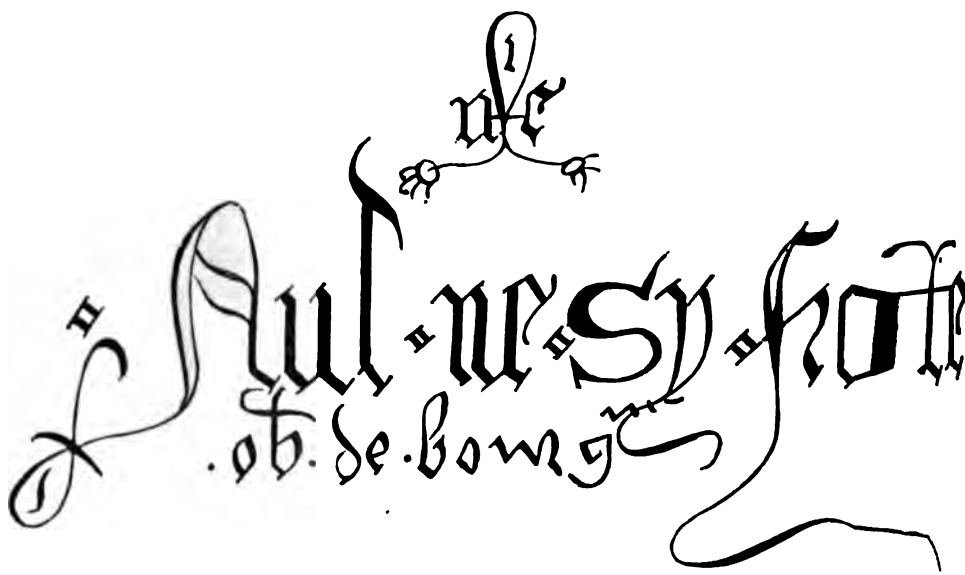 Nul ne sy frote
.ob. de .bourgne